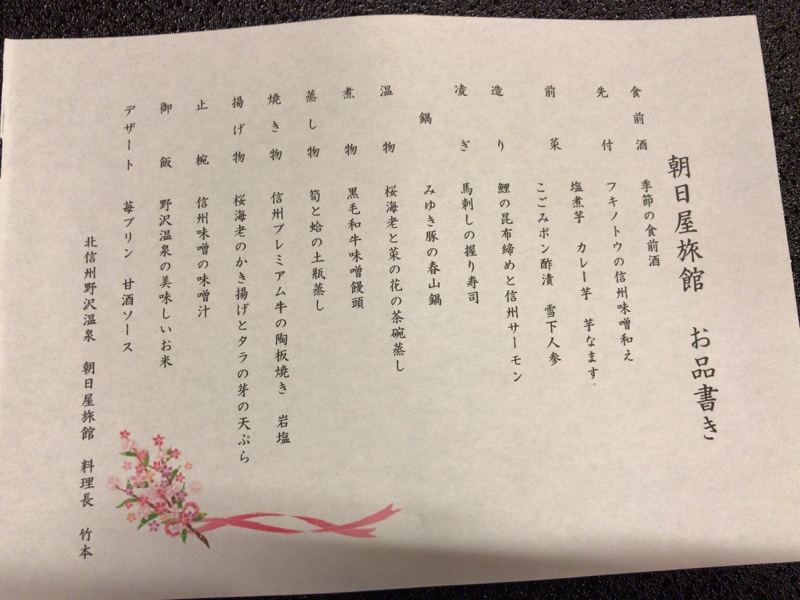 朝日屋旅館 お品書き
食前酒 季節の食前酒
先付 フキノトウの信州味噌和え
塩煮芋 カレー芋 芋なます
前菜 こごみポン酢漬 雪下人参
造り 鯉の昆布締めと信州サーモン
凌ぎ 馬刺しの握り寿司
鍋 みゆき豚の春山鍋
温物 桜海老と菜の花の茶碗蒸し
煮物 黒毛和牛味噌饅頭
蒸し物 筍と蛤の土瓶蒸し
焼き物 信州プレミアム牛の陶板焼き 岩塩
揚げ物 桜海老のかき揚げとタラの芽の天ぷら
止椀 信州味噌の味噌汁
御飯 野沢温泉の美味しいお米
デザート 苺プリン 甘酒ソース
北信州野沢温泉 朝日屋旅館 料理長 竹本